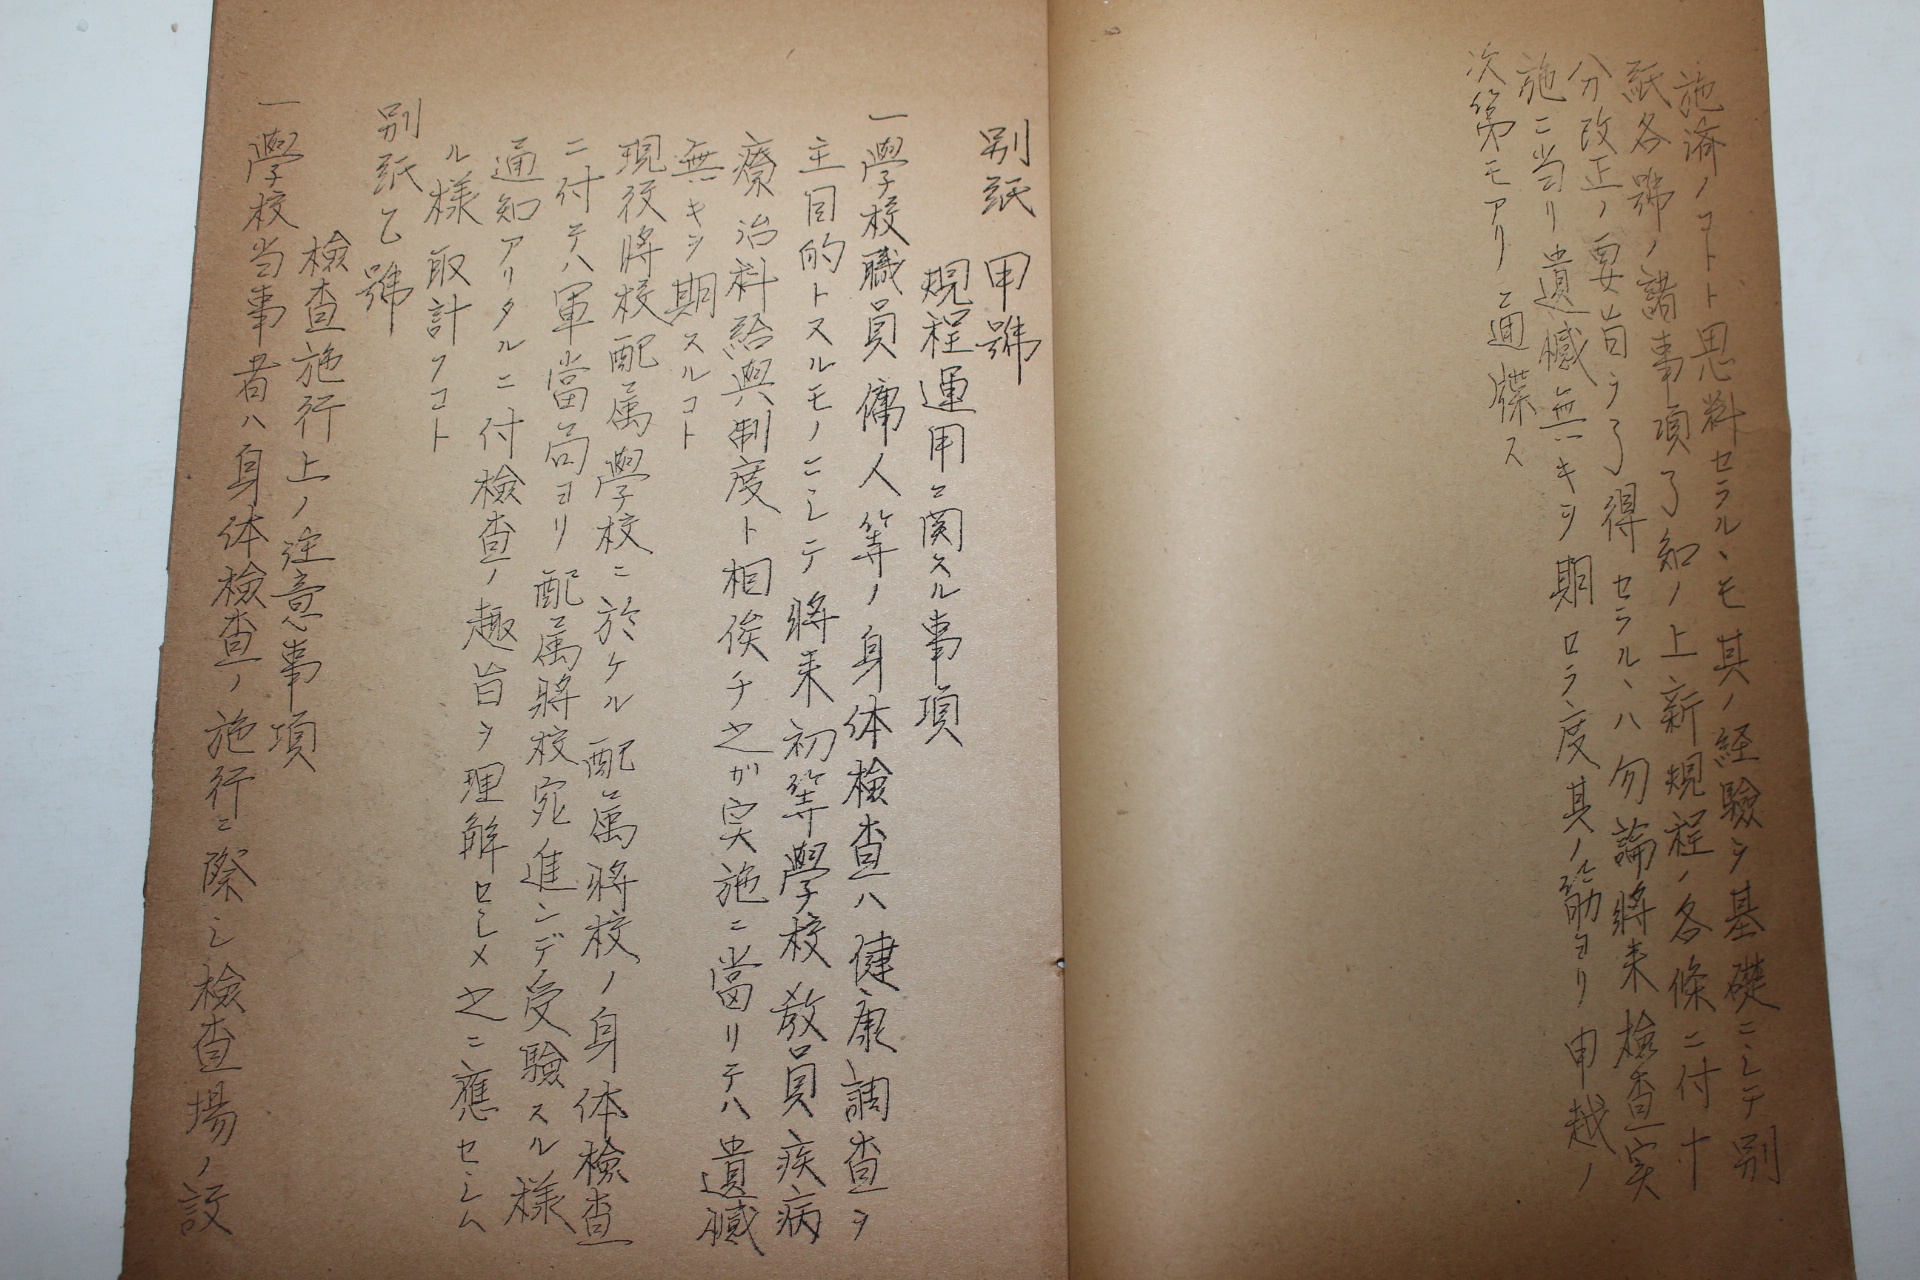 施済ノコトト思料セラルヽモ其ノ経驗ヲ基礎ニシテ別
紙各號ノ諸事項了知ノ上新規程ノ各條ニ付十
分改正ノ要旨ヲ了得セラルヽハ勿論將来檢査実
施ニ当リ遺憾無キヲ期セララ度其ノ筋ヨリ申越ノ
次第モアリ此通牒ス
別紙甲號
規程運用ニ関スル事項
一學校職員傭人等ノ身体檢査ハ健康調査ヲ
主目的トスルモノニシテ將来初等學校教員疾病
療治料給與制度ト相俟チ之ガ実施ニ當リテハ遺憾
無キヲ期スルコト
現役將校配属學校ニ於ケル配属將校ノ身体檢査
ニ付テハ軍當局ヨリ配属將校宛進ンデ受験スル様
通知アリタルニ付檢査ノ趣旨ヲ理解セシメ之ニ應セシム
ル様取計フコト
別紙乙號
檢査施行上ノ注意事項
一學校当事者ハ身体檢査ノ施行ニ際シ檢査場ノ設